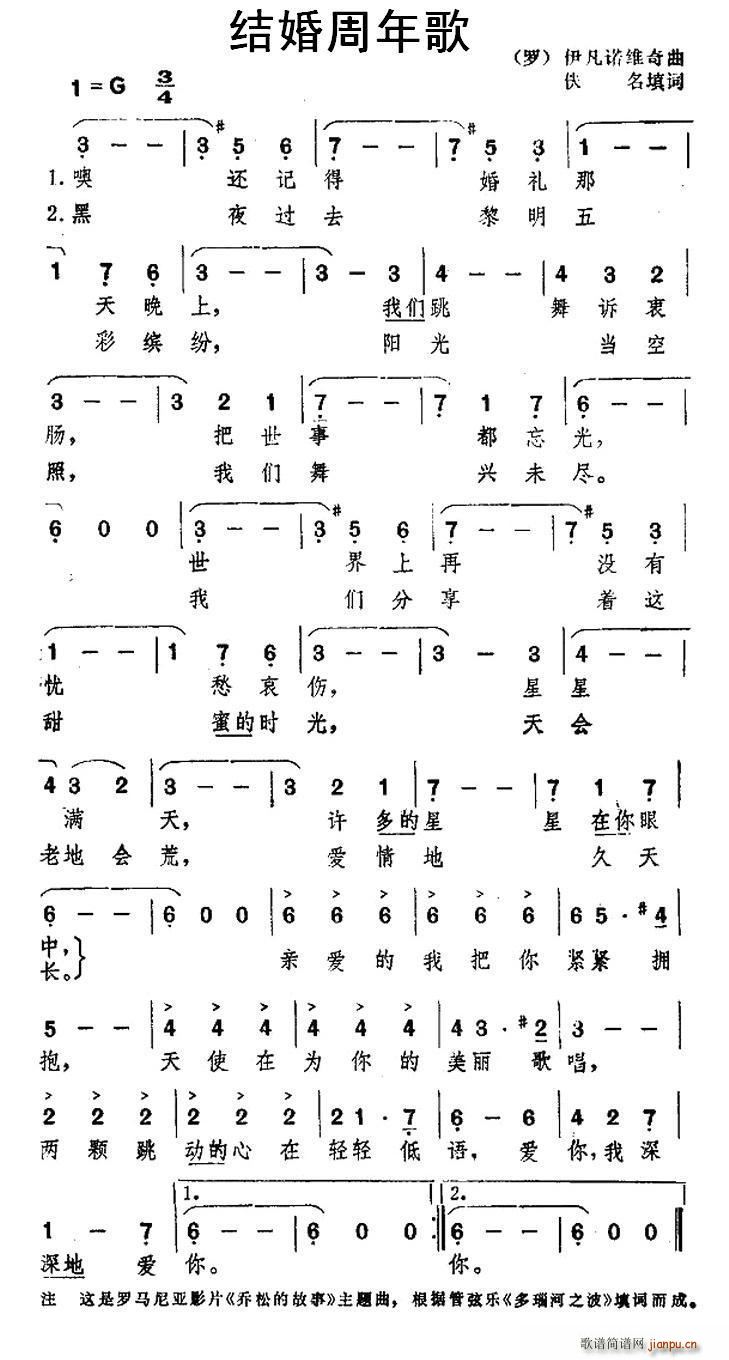 结婚周年歌
（罗）伊凡诺维奇曲
1=G 3/4
佚 名填词
3 - - | 3 #5 6 | 7 - - | 7 #5 3 | 1 - - |
1.噢 还记得 婚礼那
2.黑 夜过去 黎明五
1 7 6 | 3 - - | 3 - 3 | 4 - - | 4 3 2 |
天晚上， 我们跳 舞诉衷
彩缤纷， 阳光 当空
3 - - | 3 2 1 | 7 - - | 7 1 7 | 6 - - |
肠， 把世事 都忘光，
照， 我们舞 兴未尽。
6 0 0 | 3 - - | 3 #5 6 | 7 - - | 7 #5 3 |
世 界上再 没有
我 们分享 着这
1 - - | 1 7 6 | 3 - - | 3 - 3 | 4 - - |
忧 愁哀伤， 星星
甜 蜜的时光， 天会
4 3 2 | 3 - - | 3 2 1 | 7 - - | 7 1 7 |
满天， 许多的星 星在你眼
老地会荒， 爱情地 久天
6 - - | 6 0 0 | 6 6 6 | 6 6 6 | 6 5 · #4 |
中，
长。} 亲爱的我把你紧紧拥
5 - - | 4 4 4 | 4 4 4 | 4 3 · #2 | 3 - - |
抱， 天使在为你的美丽歌唱，
2 2 2 | 2 2 2 | 2 1 · 7 | 6 - 6 | 4 2 7 |
两颗跳动的心在轻轻低语，爱你，我深
1. 2.
1 - 7 | 6 - - | 6 0 0 :| 6 - - | 6 0 0 ‖
深地爱你。 你。
注 这是罗马尼亚影片《乔松的故事》主题曲，根据管弦乐《多瑙河之波》填词而成。
歌谱简谱网
jianpu.cn